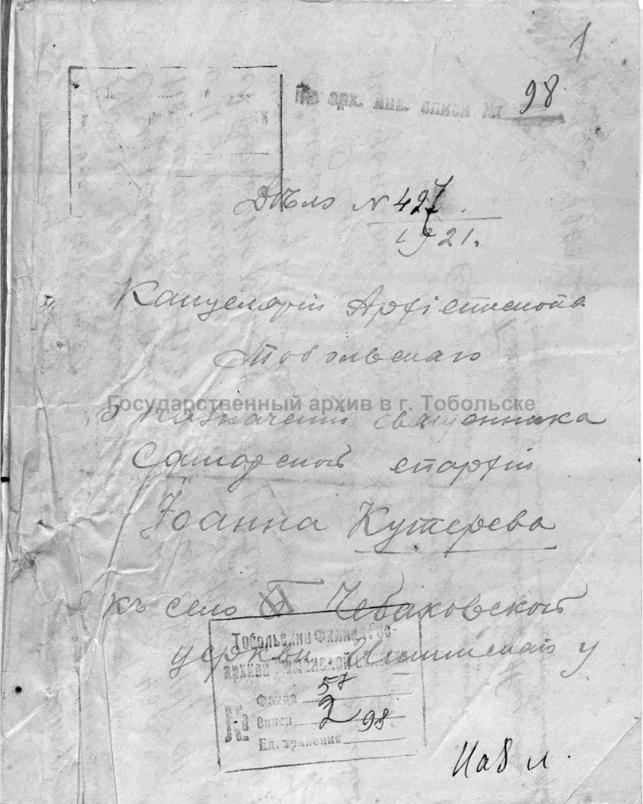 1
По арх. инв. описи № 98
Дѣло № 427.
1921.
Канцелярiи Архiепископа
Тобольскаго
Государственный архив в г. Тобольске
О назначенiи священника
Самарской епархiи
Iоанна Кутерева
къ село Чебаковской
церкви Ишимскаго у
Тобольский Филиал Гос-
архива Тюменской
Фонд 57
Опись 2
Ед. хранения 98
На 8 л.